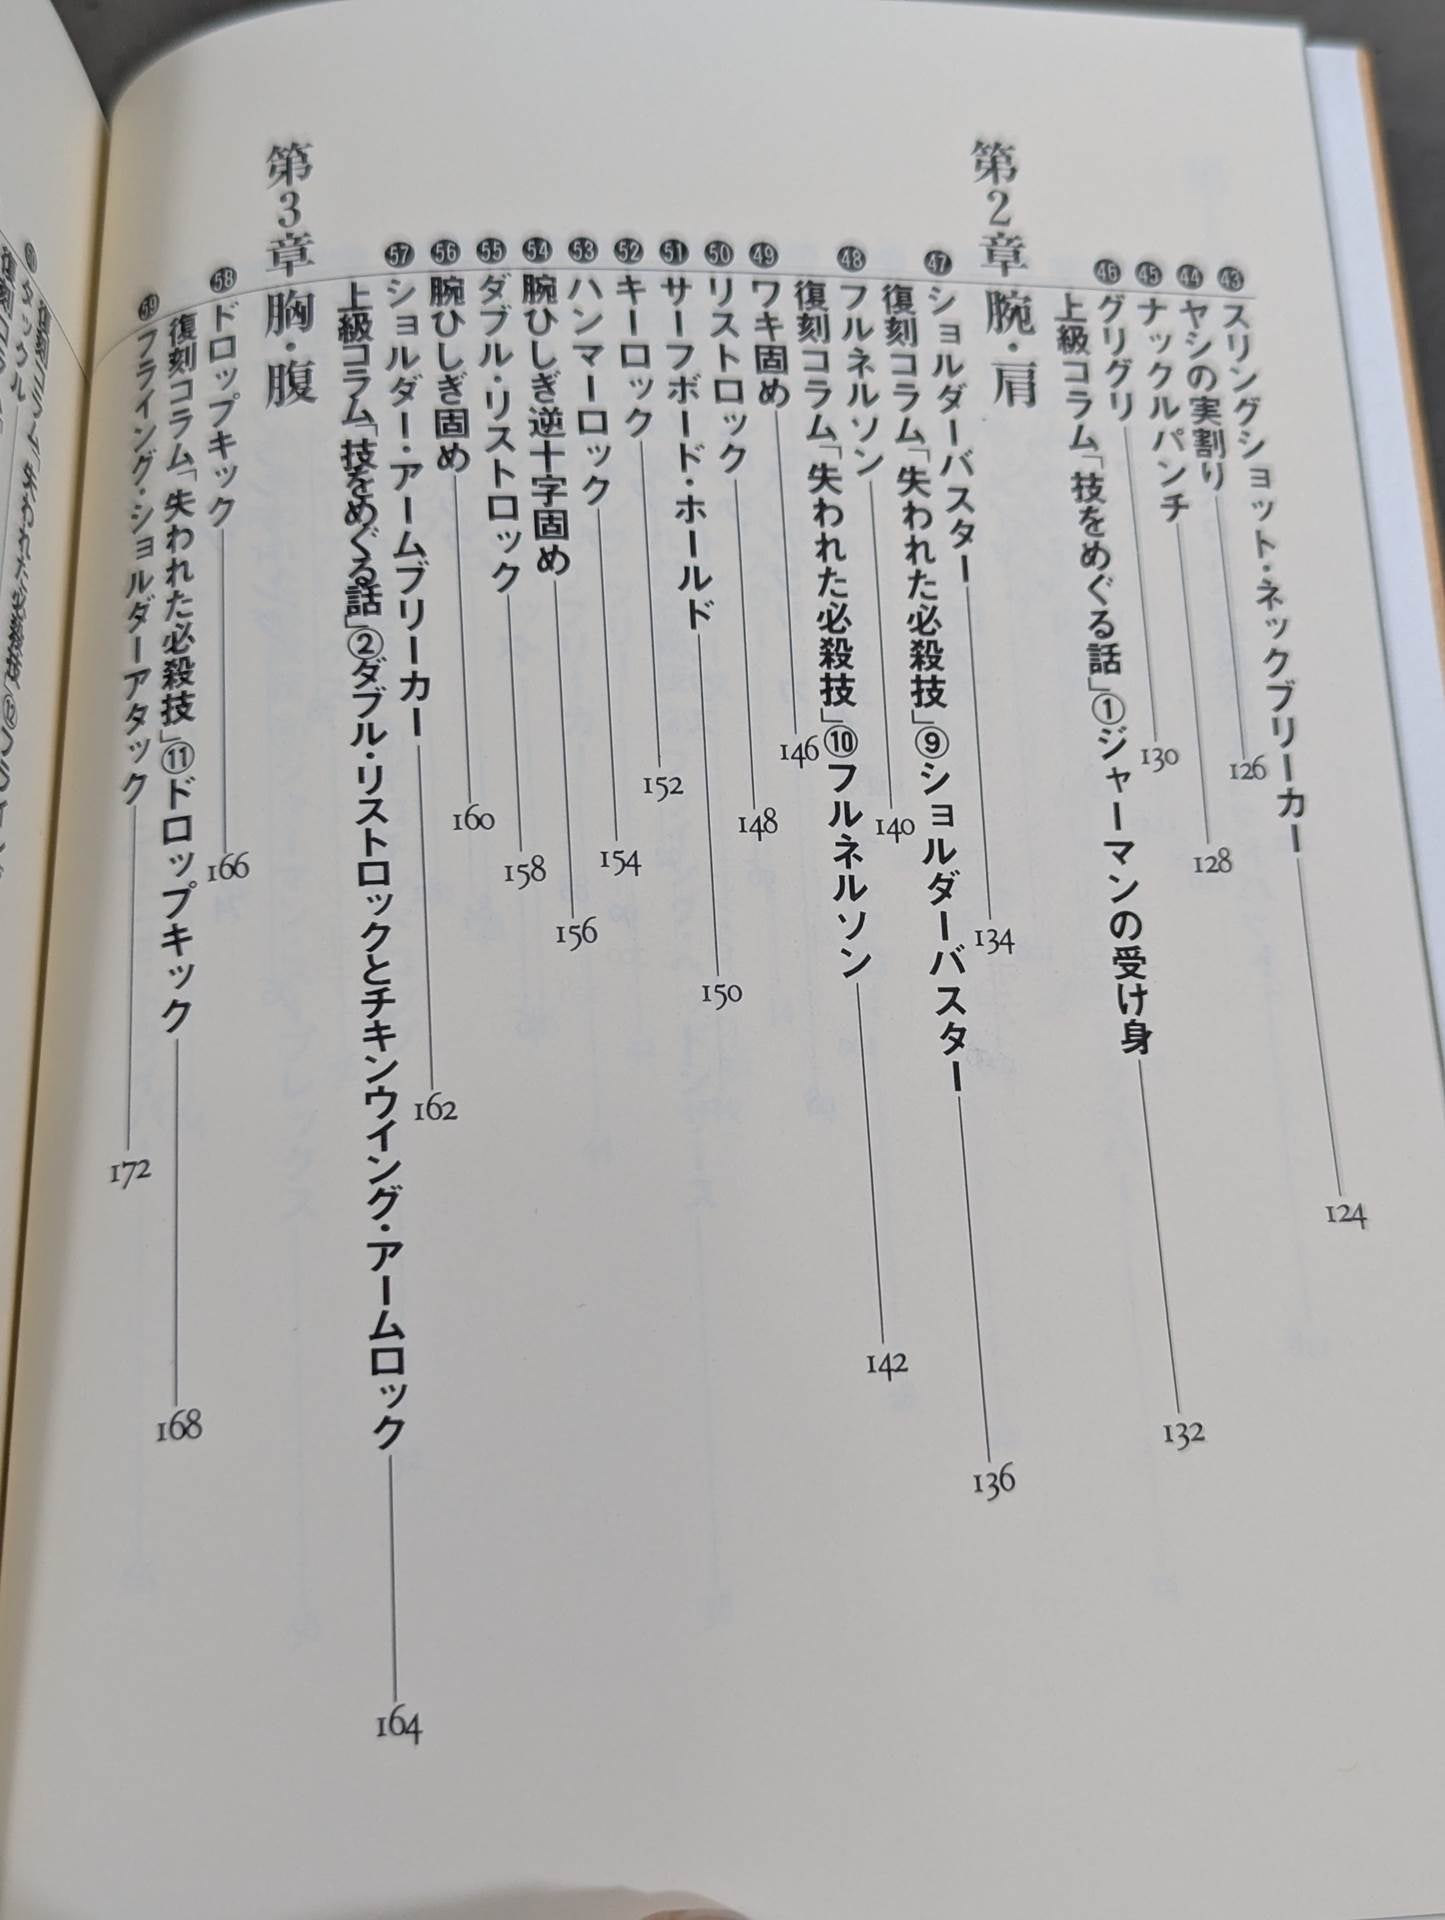 ㊸スリングショット・ネックブリーカー 124
㊹ヤシの実割り 126
㊺ナックルパンチ 128
㊻グリグリ 130
上級コラム「技をめぐる話」①ジャーマンの受け身 132
第2章 腕・肩
㊼ショルダーバスター 134
復刻コラム「失われた必殺技」⑨ショルダーバスター 136
㊽フルネルソン 140
復刻コラム「失われた必殺技」⑩フルネルソン 142
㊾ワキ固め 146
㊿リストロック 148
51サーフボード・ホールド 150
52キーロック 152
53ハンマーロック 154
54腕ひしぎ逆十字固め 156
55ダブル・リストロック 158
56腕ひしぎ固め 160
57ショルダー・アームブリーカー 162
上級コラム「技をめぐる話」②ダブル・リストロックとチキンウイング・アームロック 164
第3章 胸・腹
58ドロップキック 166
復刻コラム「失われた必殺技」⑪ドロップキック 168
59フライング・ショルダーアタック 172